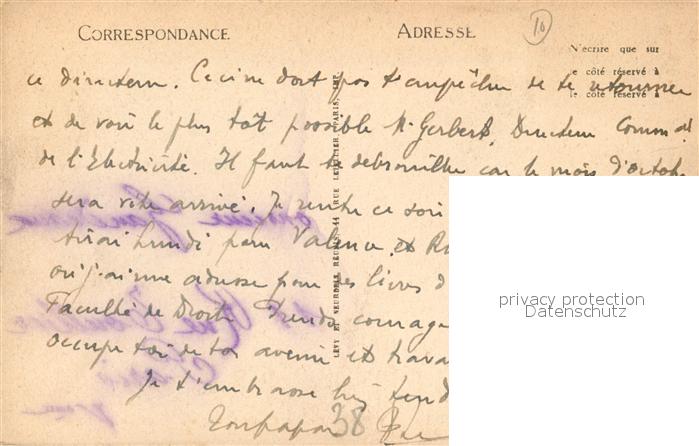 CORRESPONDANCE
ADRESSE
10
N'écrire que sur
le côté réservé à
le côté réservé à
ce directeur. Ceci ne doit pas t'empêcher de te retourner
et de voir le plus tôt possible M. Gerbert, Directeur Commal
de l'Electricité. Il faut te débrouiller car le mois d'octob
sera vite arrivé. Je rentre ce soir
lundi pour Valence et
où j'ai une adresse pour les livres d
Faculté de Droit. Prends courage
occupe toi de ton avenir et trava
Je t'embrasse bien tend
Ton papa
38
LEVY ET NEURDEIN REUNIS, 44 RUE LETELLIER, PARIS, IMP.
privacy protection
Datenschutz